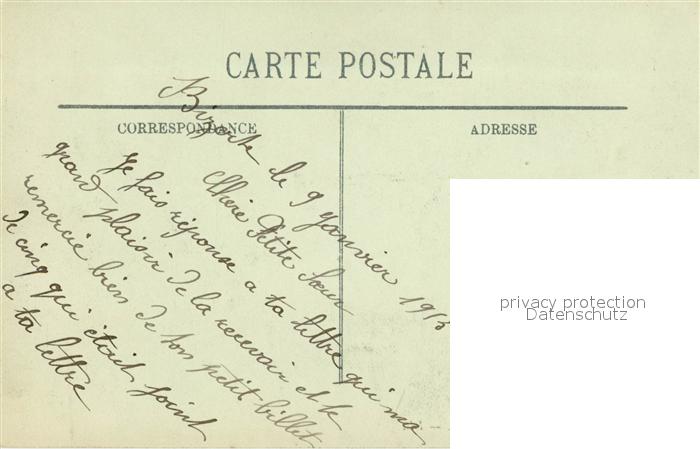 CARTE POSTALE
CORRESPONDANCE
ADRESSE
Bizerte le 9 Janvier 1915
Chère Petite Sœur
Je fais réponse a ta lettre qui ma
grand plaisir de la recevoir et te
remercie bien de ton petit billet
de cinq qui était joint
a ta lettre
privacy protection
Datenschutz